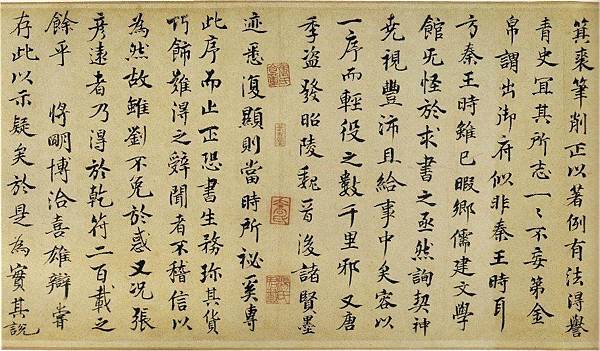 箕裘筆削正以著例有法得譽
青史冝其所志一〻不妄第金
帛謂出御府似非秦王時耳
方秦王時雖已暇鄉儒建文學
館旡怪於求書之亟然詢契神
尭視豐沛且給事中矣容以
一序而輕役之數千里邪又唐
季盜發昭陵魏晉浚諸賢墨
迹悉復顯則當時所祕奚專
此序而止正恐書生務珎其貨
巧飾難得之辭聞者不稽信以
為然故雖劉不免於惑又況張
彥遠者乃得於乾符二百載之
餘乎 將明博洽喜雄辯嘗
存此以示疑矣於是為實其說